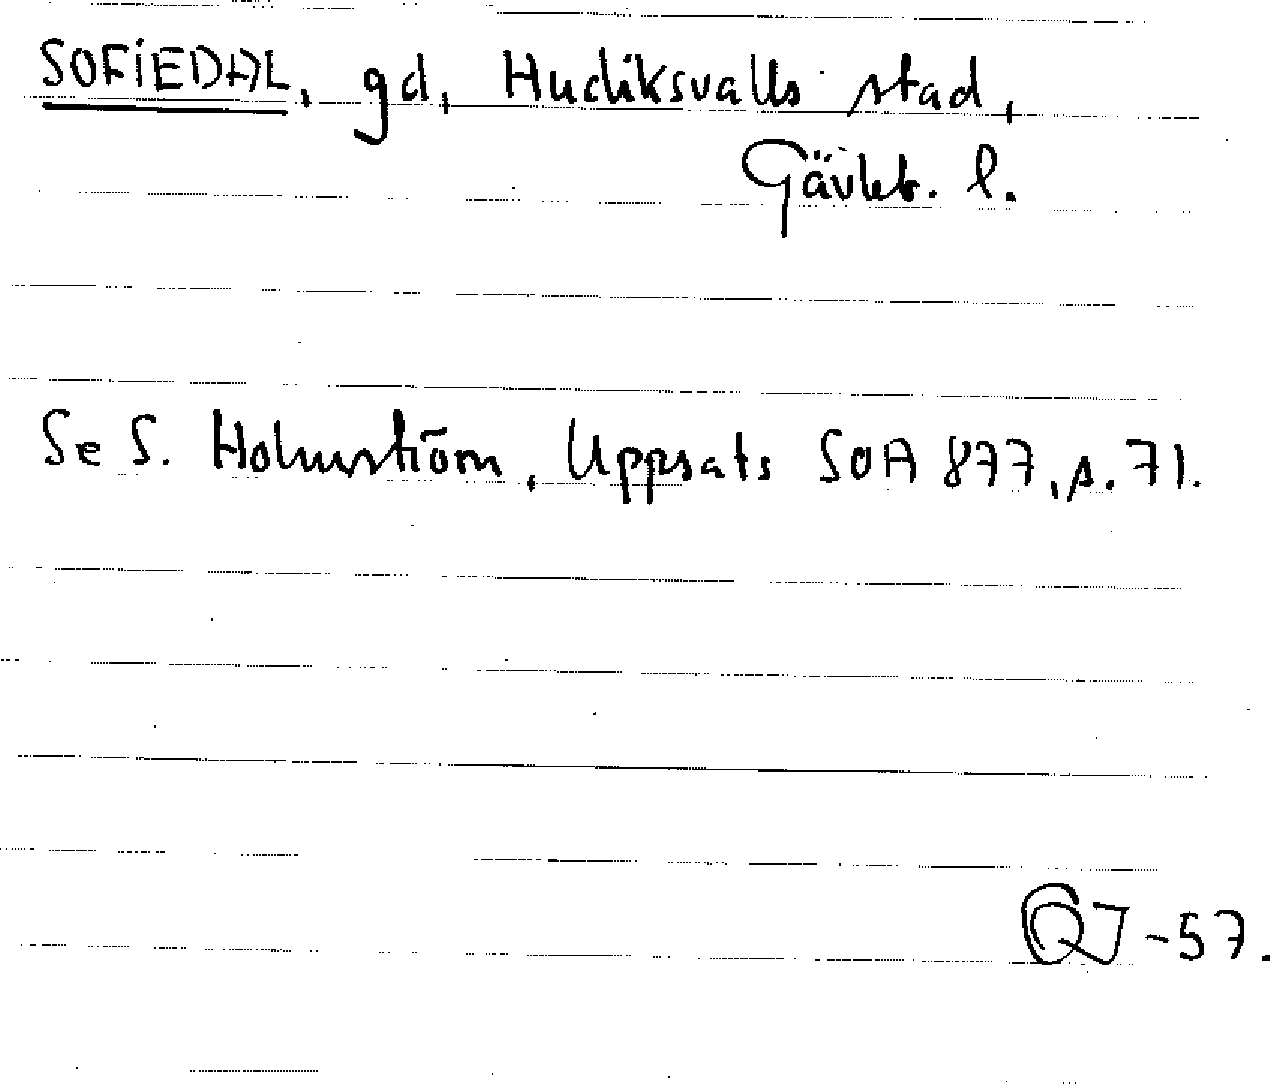 SOFIEDAL, gd, Hudiksvalls stad,
Gävleb. l.
Se S. Holmström, Uppsats SOA 877, s. 71.
-57.